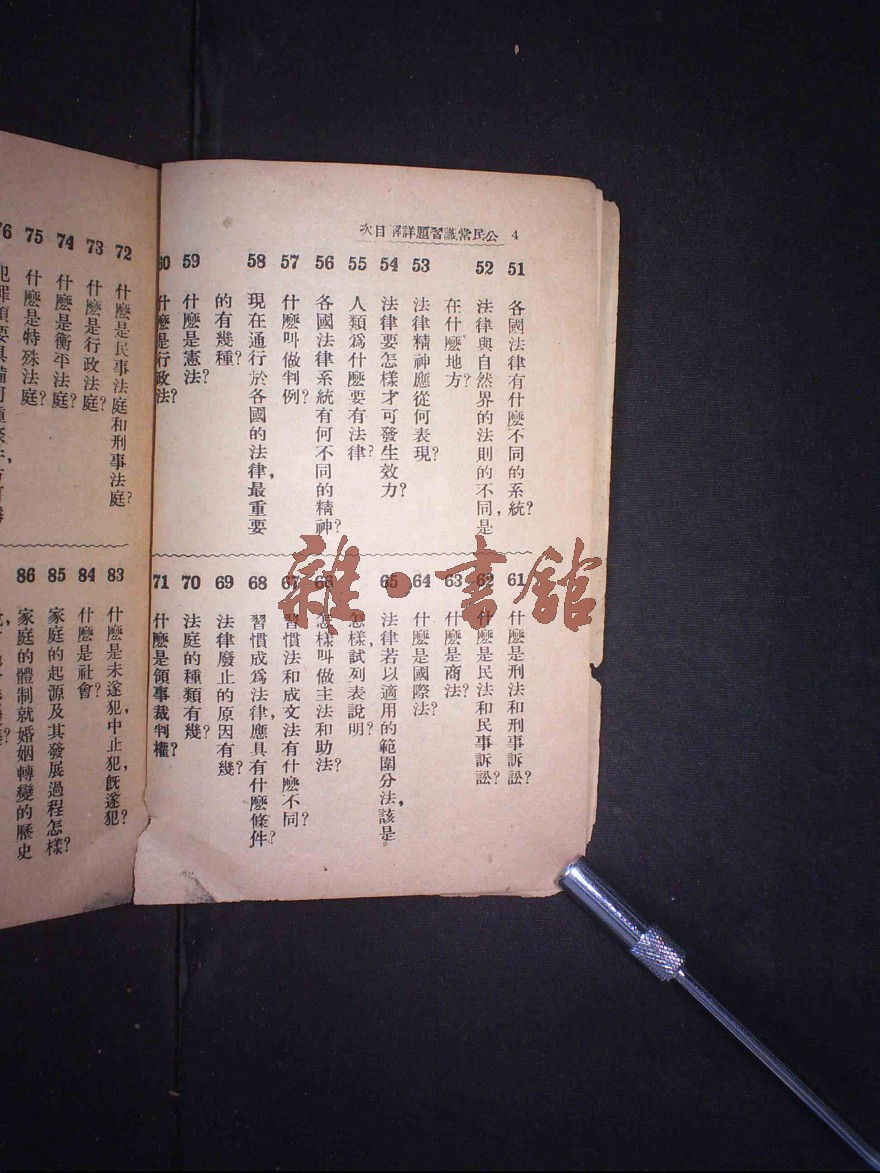 公民常識習題詳解目次 4
51 各國法律有什麼不同的系統?
52 法律與自然界的法則的不同,是
在什麼地方?
53 法律精神應從何表現?
54 法律要怎樣才可發生效力?
55 人類爲什麼要有法律?
56 各國法律系統有何不同的精神?
57 什麼叫做判例?
58 現在通行於各國的法律,最重要
的有幾種?
59 什麼是憲法?
60 什麼是行政法?
61 什麼是刑法和刑事訴訟?
62 什麼是民法和民事訴訟?
63 什麼是商法?
64 什麼是國際法?
65 法律若以適用的範圍分法,該是
怎樣,試列表說明?
66 怎樣叫做主法和助法?
67 習慣法和成文法有什麼不同?
68 習慣成爲法律,應具有什麼條件?
69 法律廢止的原因有幾?
70 法庭的種類有幾?
71 什麼是領事裁判權?
72 什麼是民事法庭和刑事法庭?
73 什麼是行政法庭?
74 什麼是衡平法庭?
75 什麼是特殊法庭?
76
83 什麼是未遂犯,中止犯,旣遂犯?
84 什麼是社會?
85 家庭的起源及其發展過程怎樣?
86 家庭的體制就婚姻轉變的歷史
雜·書館